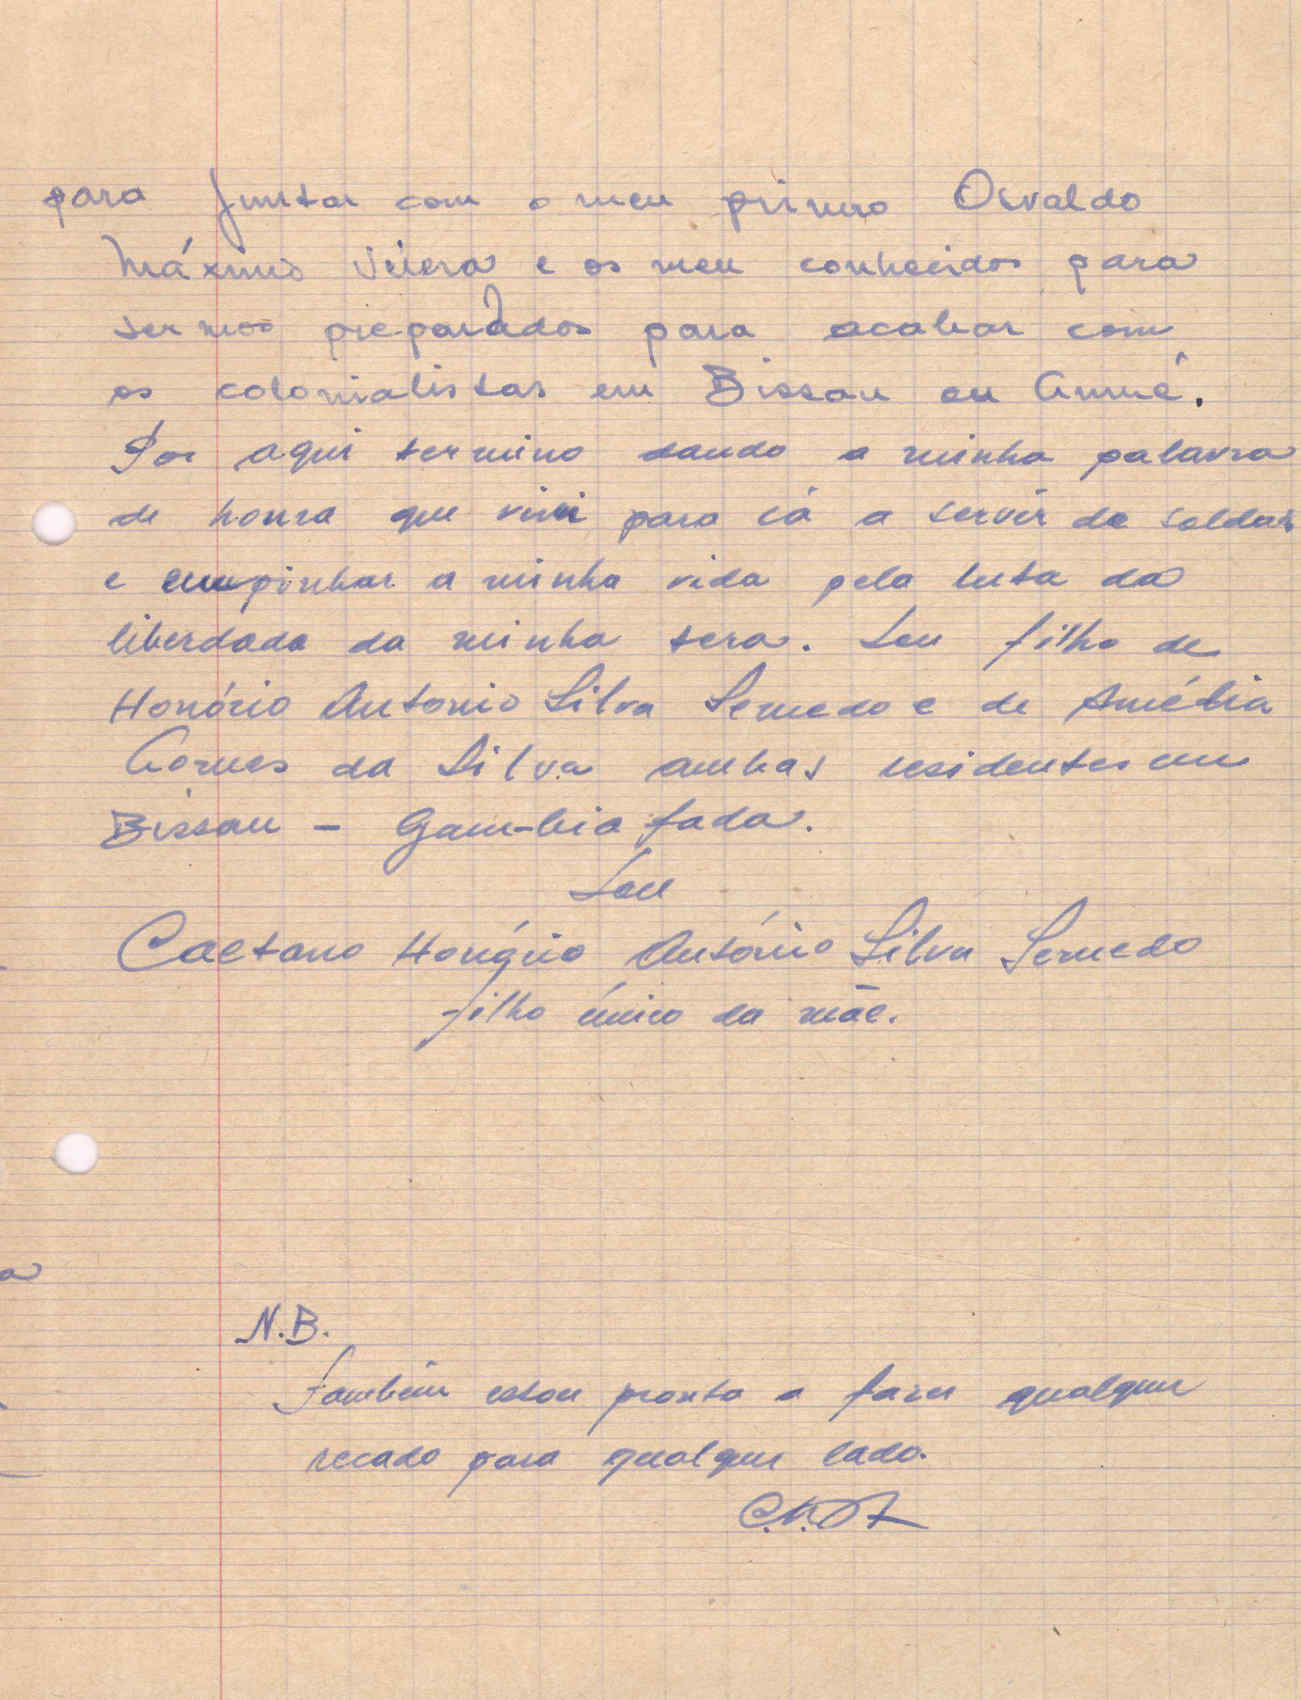 para Juntar com o meu primo Osvaldo
Máximo Vieira e os meu conhecidos para
sermos preparados para acabar com
os colonialistas em Bissau ou Guiné.
Por aqui termino dando a minha palavra
de honra que vim para cá a servir de soldado
e empinhar a minha vida pela luta da
liberdade da minha tera. Sou filho de
Honório Antonio Silva Semedo e de Amélia
Gomes da Silva ambas residentes em
Bissau - Gam-bia fada.
Sou
Caetano Honório António Silva Semedo
filho único da mãe.
a
N.B.
Também estou pronto a fazer qualquer
recado para qualquer lado.